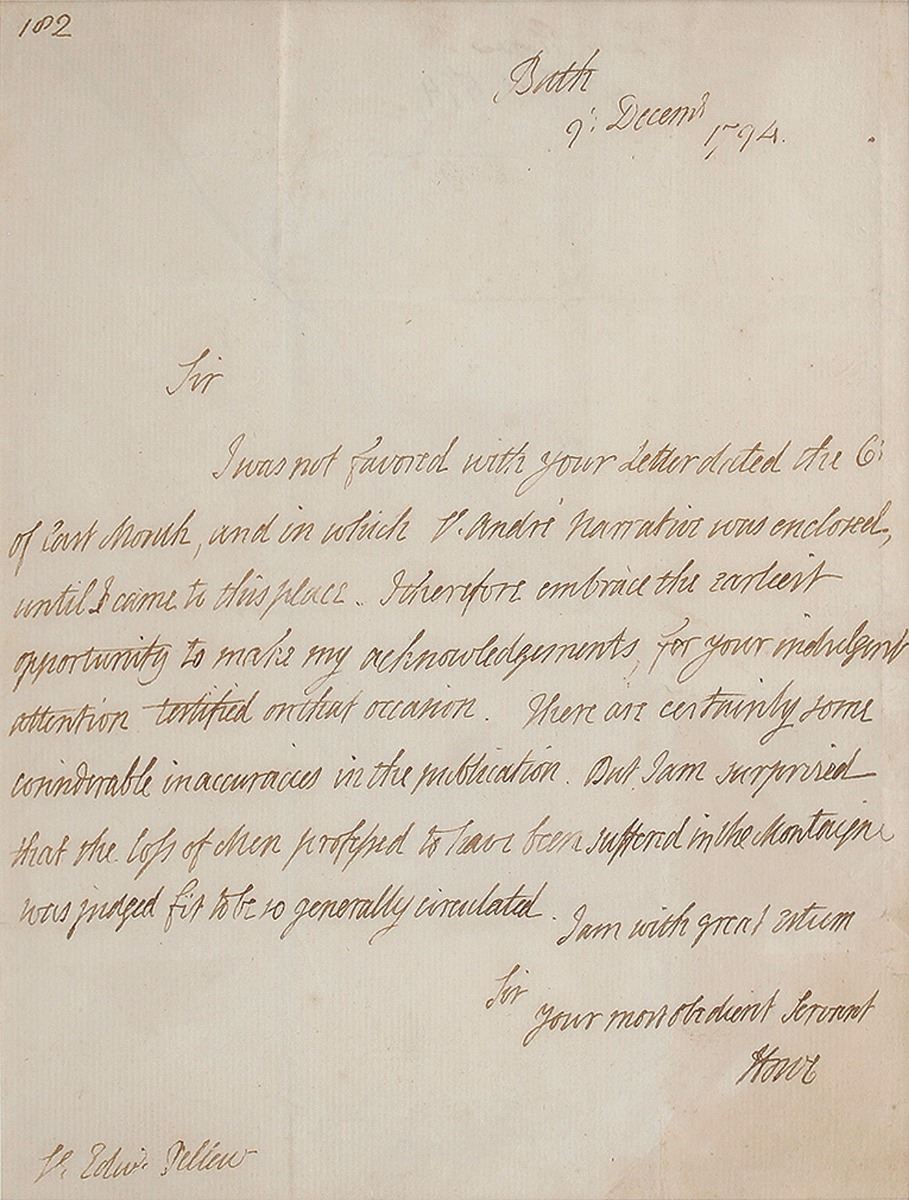 182
Bath
9: Decemr
1794.
Sir
I was not favored with your Letter dated the 6:
of Last Month, and in which St. André Narrative was enclosed,
until I came to this place. I therefore embrace the earliest
opportunity to make my acknowledgements, for your indulgent
attention testified on that occasion. There are certainly some
considerable inaccuracies in the publication. But I am surprized
that the Loss of Men professed to have been suffered in the Montaigne
was judged fit to be so generally circulated.
I am with great esteem
Sir
your most obedient Servant
Howe
Sr. Edwd. Pellew